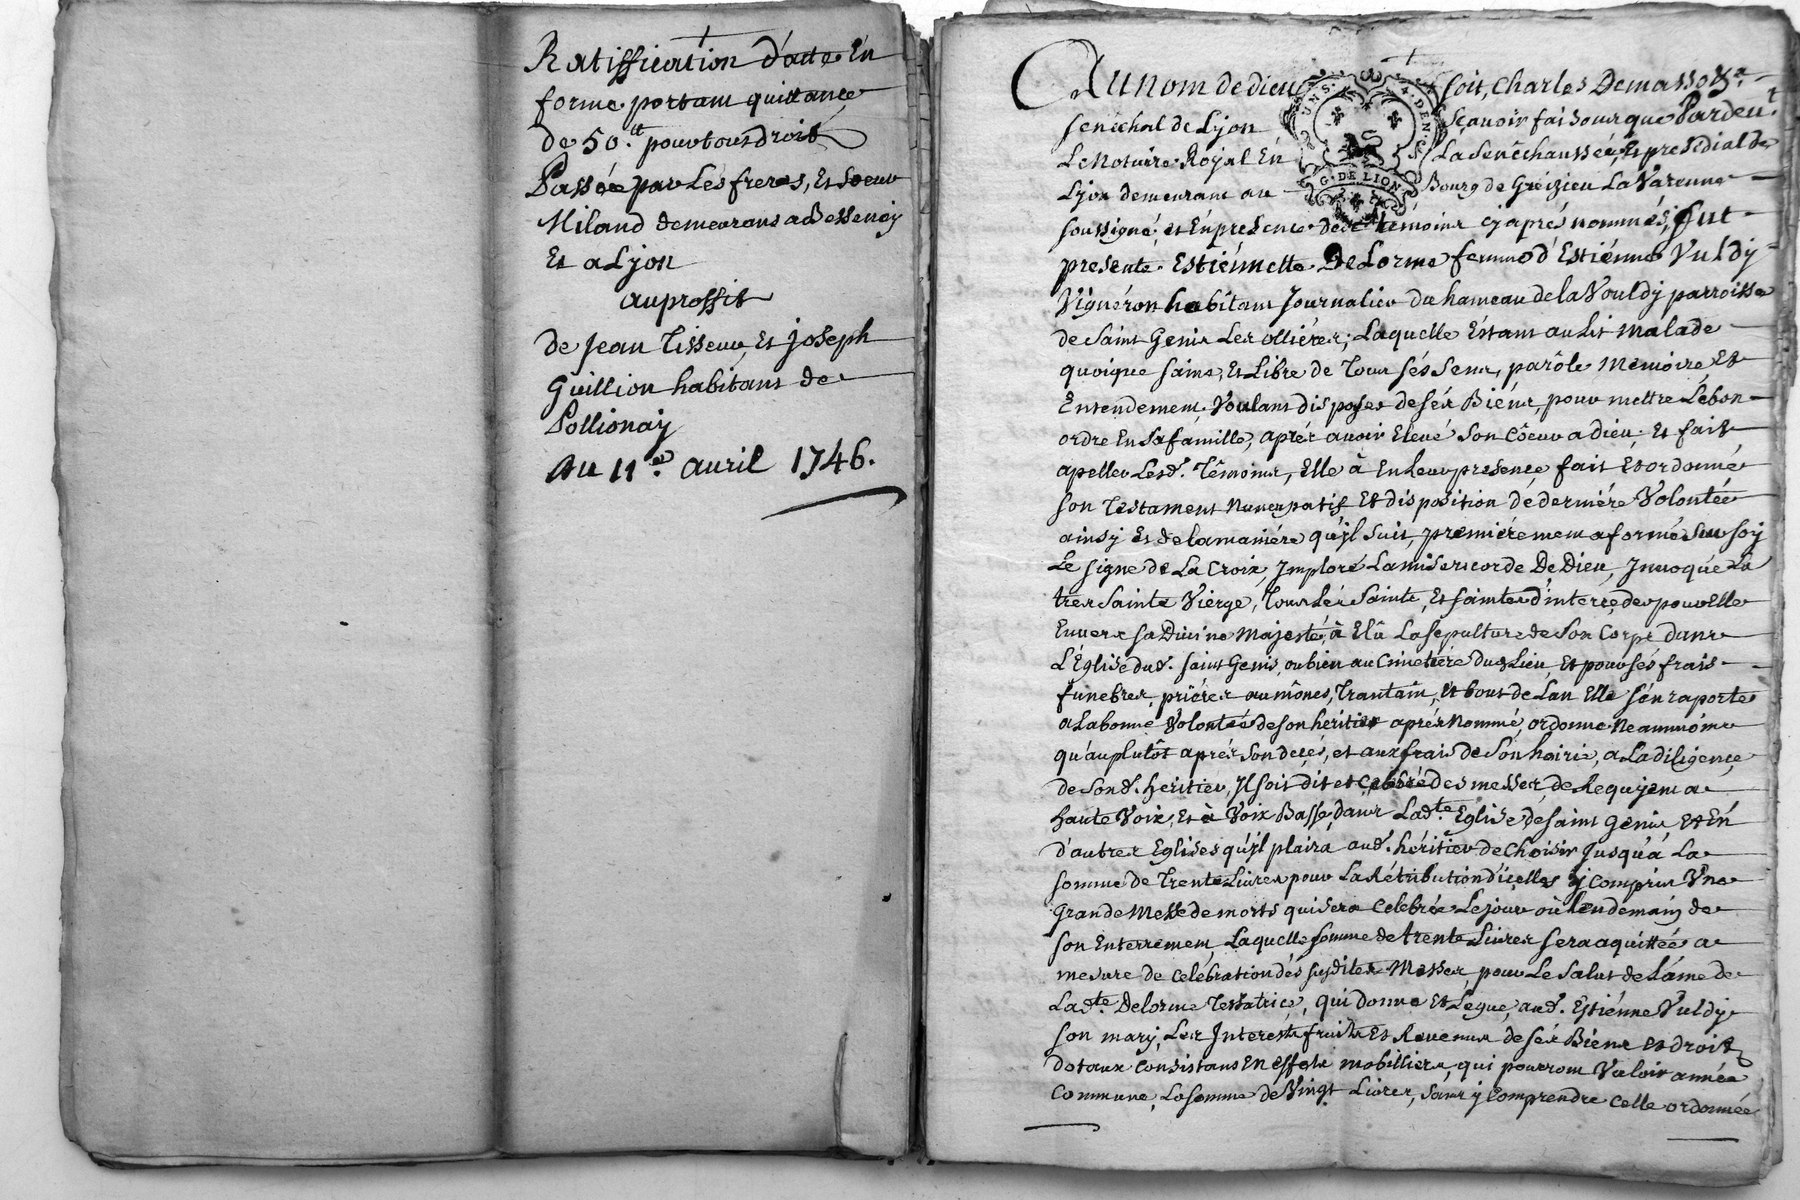 Ratiffication d'acte En
forme portant quittance
de 50.lt pour tous droits
Passée par Les freres, Et Soeur
Miland demeurans a Bessenay
Et a Lyon
au proffit
de Jean Tisseur, Et Joseph
Guillion habitans de
Pollionay
Au 11.e avril 1746.
Au nom de dieu soit, Charles Demasso Sr.
senechal de Lyon sçavoir faisons que Pardevt.
Le Notaire Royal En La Senêchaussée, Et presidial de
Lyon demeurant au Bourg de Grézieu La Varenne
soussigné, et En presence des témoins cy après nommés, fut
presente Estiénnette De Lorme femme d'Estiénne Vuldy
Vignéron habitant Journalier du hameau de la Vouldy parroisse
de Saint Genis Les ollières; Laquelle Estant au Lit Malade
quoique saine, Et Libre de Tous sés sens, parôle, Memoire Et
Entendement, Voulant disposer de sés Biéns, pour mettre Lé bon
ordre En sa famille, aprés avoir Elevé son Côeur a dieu, Et fait
apeller Lesd. Têmoins, Elle à En Leur presence fait Et ordonné
son Testament Nuncupatif Et disposition dé derniére Volontée
ainsy Et de la maniére qu'jl suit, premiérement a formé sur soy
Le signe de La Croix, Jmploré La misericorde De Dieu, Jnvoqué La
tres Sainte Viérge, Tous Lés Saints, Et saintes d'interçeder pour Elle
Envers sa Divine Majesté, à Elû La sepulture de Son Corps dans
L'Église dud. saint Genis, ou bien au Cimetiére dud. Lieu, Et pour sés frais
funebres, priéres aumônes, Trantain, Et bout de L'an Elle s'én raporte
a La bonne Volontée de son heritier aprés Nommé, ordonne Neanmoins
qu'au plutôt aprés son deçés, et aux frais de Son hoirie, a La diligençe
de Sond. heritier, Jl soit dit et celebré des messes, de Requjem a
haute Voix, Et à Voix Basse, dans Ladte. Eglise de saint Genis, Et En
d'autres Eglises qu'jl plaira aud. héritier de Choisir Jusqu'à La
somme de Trente Livres pour La Rétribution d'içelles y Compris Une
grande Messe de morts qui sera Celebrée Le jour où Lendemain de
son Enterrement, Laquelle somme de trente Livres sera aquittée a
mesure de celébration dés susdites Messes, pour Le salut de L'ame de
Ladte. Delorme Testatrice, qui donne Et Légue, aud. Estiénne Vuldy
son mary, Les Interests fruits Et Revenus de sés Biéns et droits
dotaux Consistans En Effets mobilliers, qui pourront Valoir année
Commune, La somme de Vingt Livres, sans y Comprendre celle ordonnée
G. DE LION